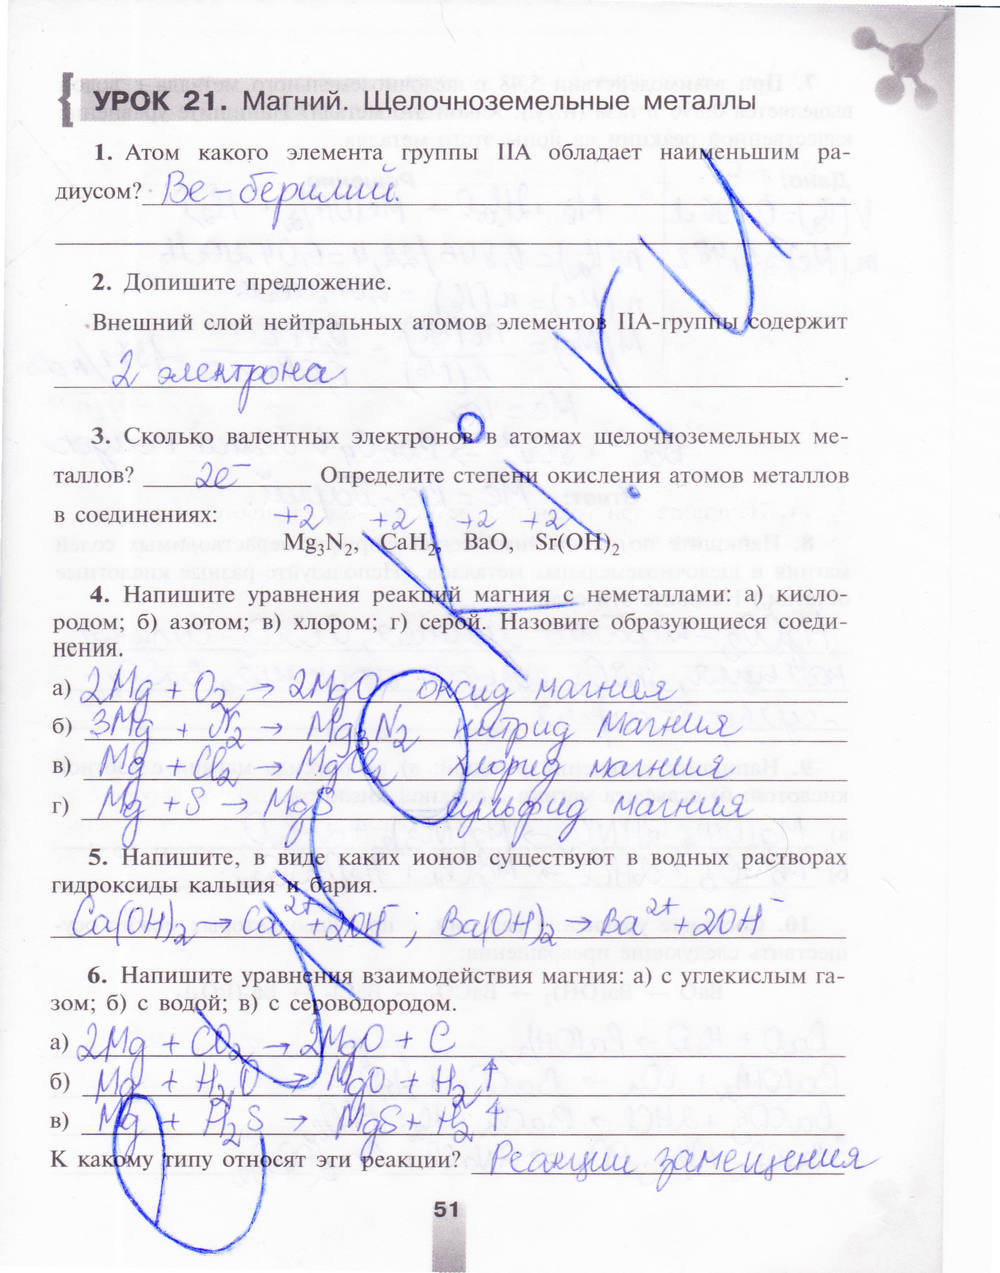 УРОК 21. Магний. Щелочноземельные металлы
1. Атом какого элемента группы IIA обладает наименьшим ра-
диусом? Be - берилий.
2. Допишите предложение.
Внешний слой нейтральных атомов элементов IIA-группы содержит
2 электрона.
3. Сколько валентных электронов в атомах щелочноземельных ме-
таллов? 2e⁻ Определите степени окисления атомов металлов
в соединениях: +2 +2 +2 +2
Mg₃N₂, CaH₂, BaO, Sr(OH)₂
4. Напишите уравнения реакций магния с неметаллами: а) кисло-
родом; б) азотом; в) хлором; г) серой. Назовите образующиеся соеди-
нения.
а) 2Mg + O₂ → 2MgO оксид магния
б) 3Mg + N₂ → Mg₃N₂ нитрид магния
в) Mg + Cl₂ → MgCl₂ хлорид магния
г) Mg + S → MgS сульфид магния
5. Напишите, в виде каких ионов существуют в водных растворах
гидроксиды кальция и бария.
Ca(OH)₂ → Ca²⁺ + 2OH⁻; Ba(OH)₂ → Ba²⁺ + 2OH⁻
6. Напишите уравнения взаимодействия магния: а) с углекислым га-
зом; б) с водой; в) с сероводородом.
а) 2Mg + CO₂ → 2MgO + C
б) Mg + H₂O → MgO + H₂↑
в) Mg + H₂S → MgS + H₂↑
К какому типу относят эти реакции? Реакции замещения
51